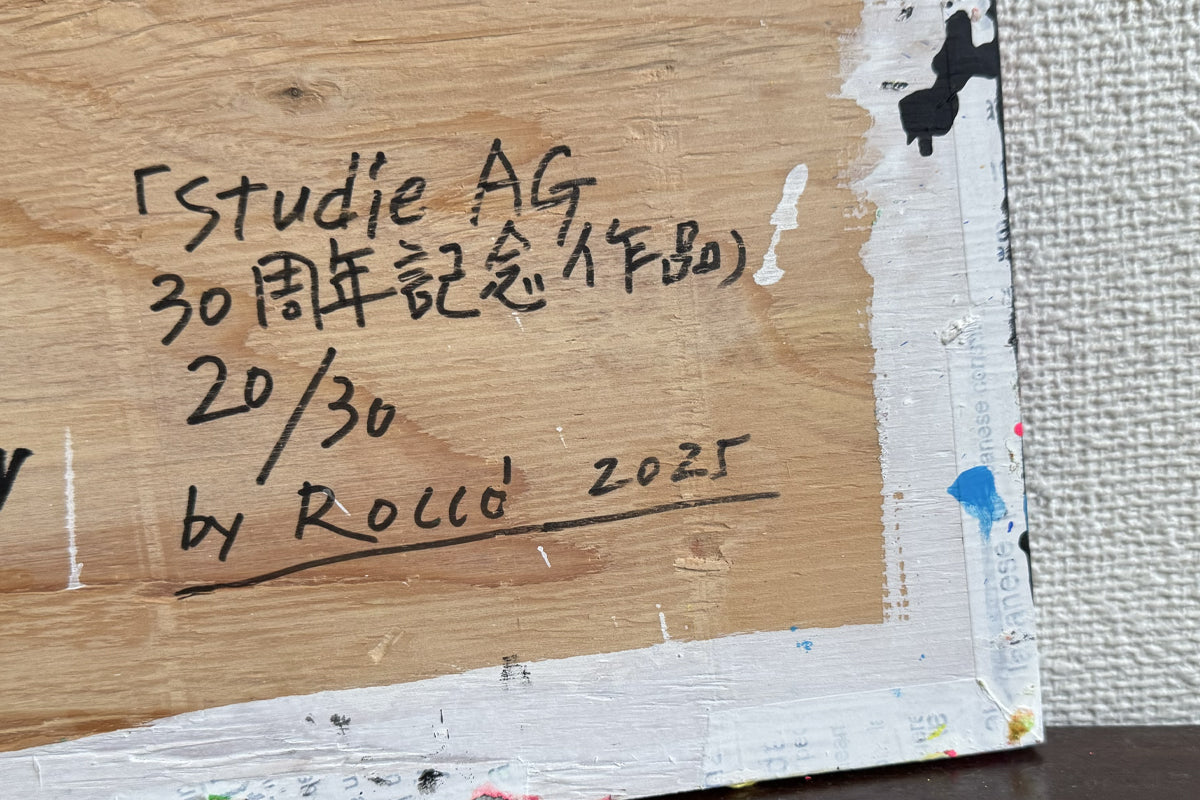 「studie AG
30周年記念作品)
20/30
by Rocco' 2025
anese
Japanese